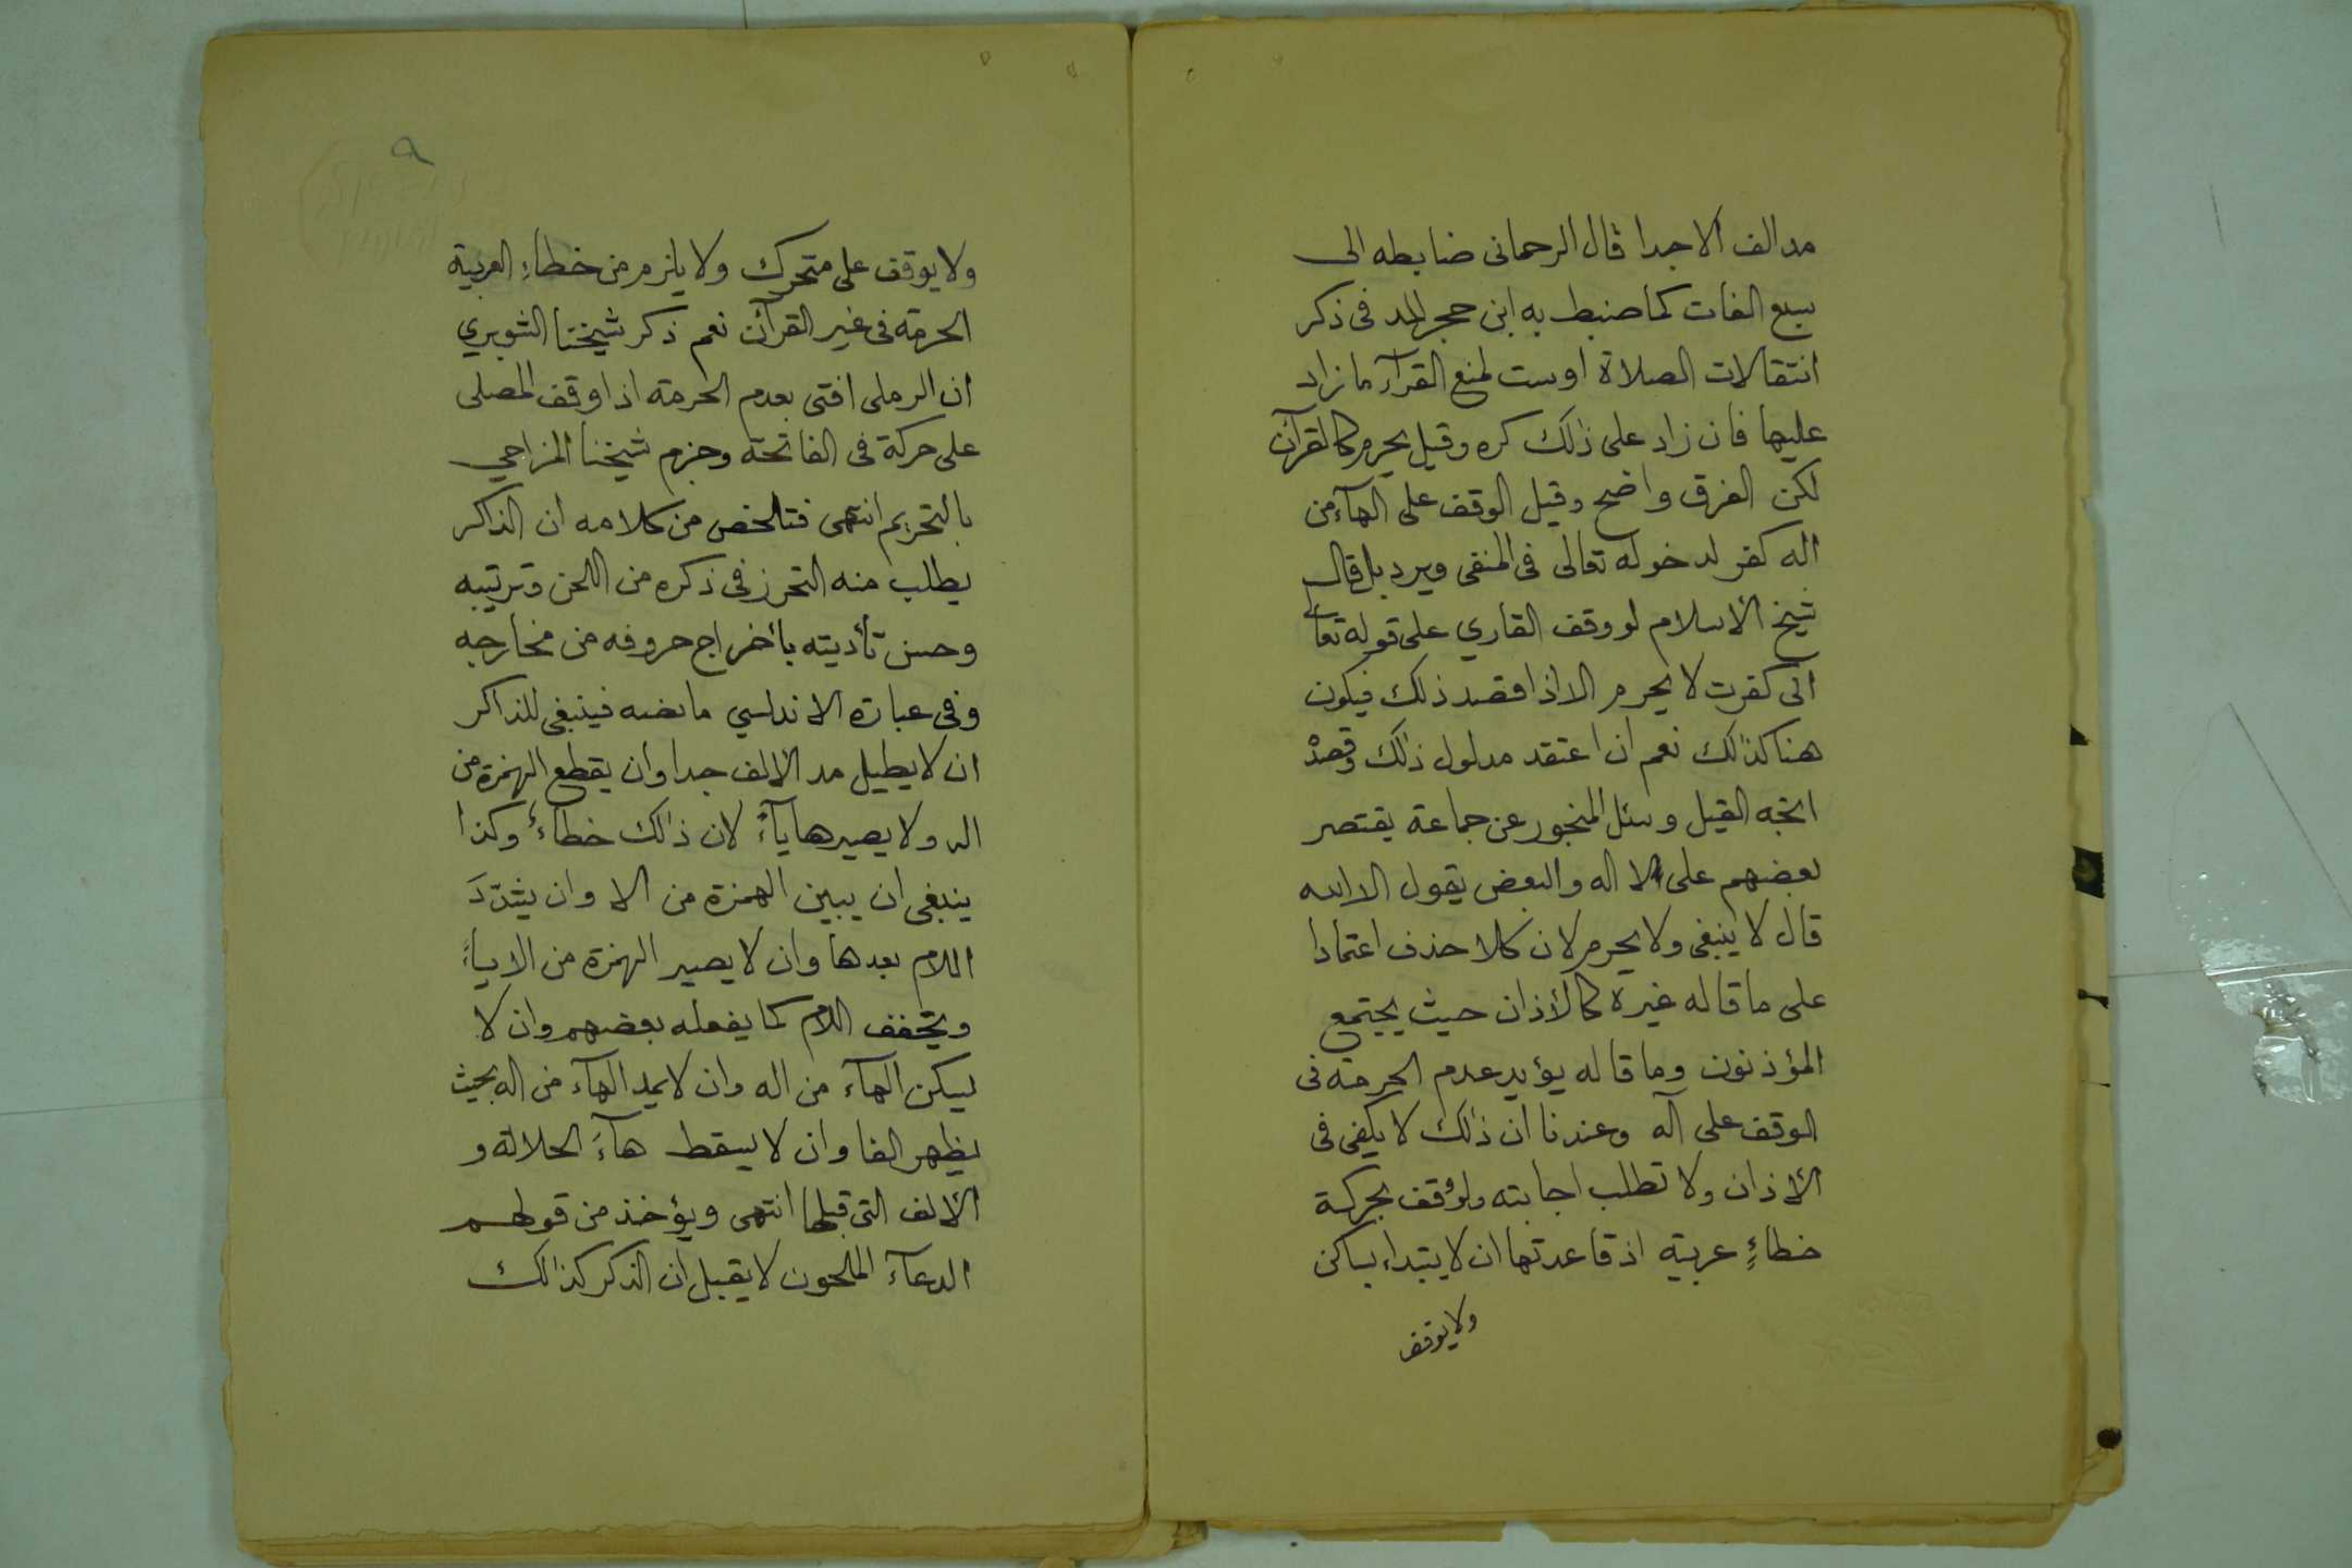 مد الف الا جدا قال الرحمانى ضابطه الى
سبع الفات كما ضبط به ابن حجر المد فى ذكر
انتقالات الصلاة اوست لمنع القرآء ما زاد
عليها فان زاد على ذلك كره وقيل يحرم كالقرآن
لكن الفرق واضح وقيل الوقف على الهآء من
اله كفر لدخوله تعالى فى المنفى ويرد بل قال
شيخ الأسلام لو وقف القاري على قوله تعالى
انى كفرت لا يحرم الا اذا قصد ذلك فيكون
هنا كذلك نعم ان اعتقد مدلول ذلك وقصدْ
اتجه القيل وسئل المنجور عن جماعة يقتصر
بعضهم على لا اله والبعض يقول الا الله
قال لا ينبغى ولا يحرم لان كلا حذف اعتمادا
على ما قاله غيره كالأذان حيث يجتمع
المؤذنون وما قاله يؤيد عدم الحرمة فى
الوقف على اله وعندنا ان ذلك لا يكفى فى
الأذان ولا تطلب اجابته ولو وقف بحركة
خطاءٍ عربية اذ قاعدتها ان لا يبتداء بساكن
ولا يوقف
٩
ولا يوقف على متحرك ولا يلزم من خطاءِ العربية
الحرمة فى غير القرآن نعم ذكر شيخنا الشوبري
ان الرملى افتى بعدم الحرمة اذا وقف المصلى
على حركة فى الفاتحة وجزم شيخنا المزاحي
بالتحريم انتهى فتلخص من كلامه ان الذاكر
يطلب منه التحرز فى ذكره من اللحن وترتيبه
وحسن تأديته بأخراج حروفه من مخارجه
وفى عبارة الاندلسي ما نصه فينبغى للذاكر
ان لا يطيل مد الألف جدا وان يقطع الهمزة من
اله ولا يصيرها يآءً لان ذالك خطاءٌ وكذا
ينبغى ان يبين الهمزة من الا وان يشدّدَ
اللام بعدها وان لا يصير الهمزة من الا ياءً
ويخفف اللام كما يفعله بعضهم وان لا
يسكن الهآء من اله وان لا يمد الهآء من اله بحيث
يظهر الفا وان لا يسقط هآءَ الجلالة و
الألف التى قبلها انتهى ويؤخذ من قولهم
الدعآء الملحون لا يقبل ان الذكر كذالك